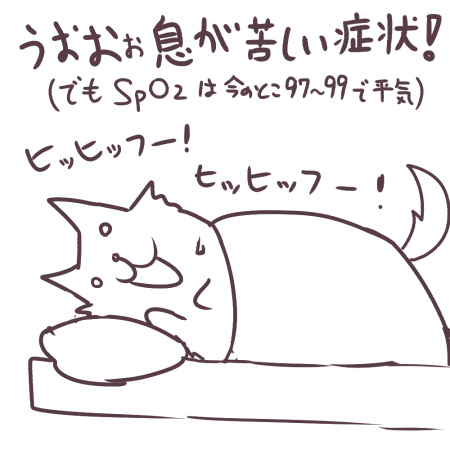 うおおぉ息が苦しい症状!
(でもSpO2は今のとこ97〜99で平気)
ヒッヒッフー!
ヒッヒッフー!